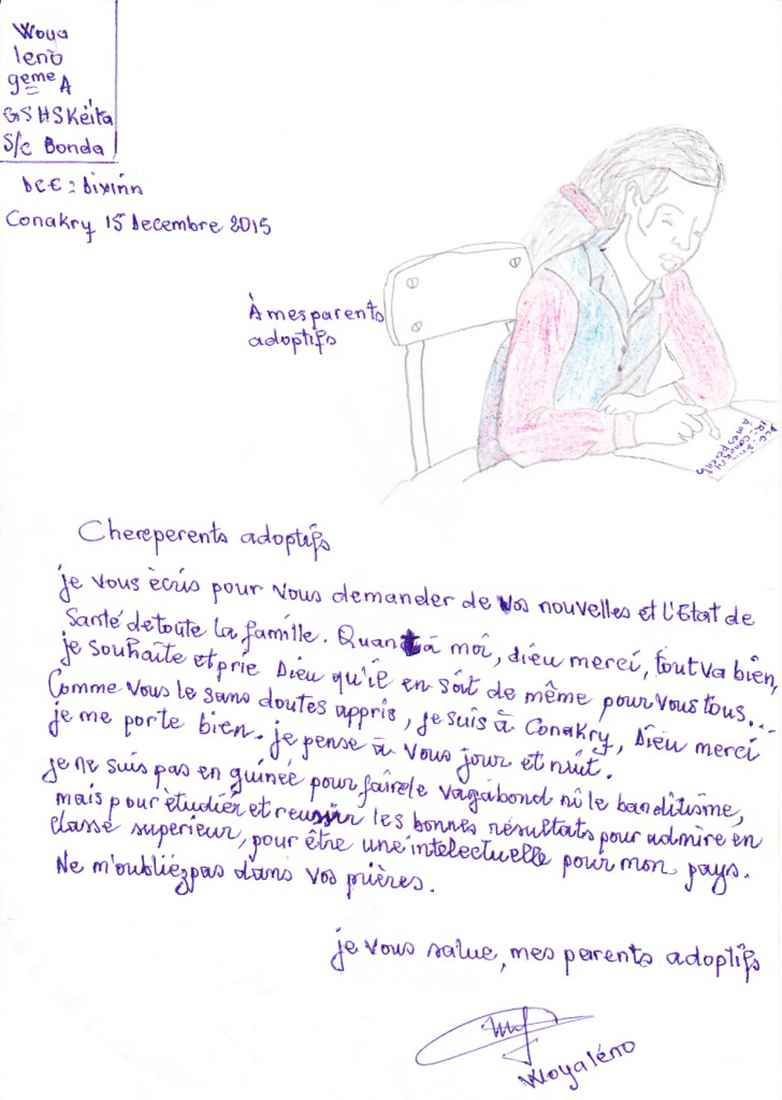 Woya
leno
9eme A
GSHSKeita
S/c Bonda
DCE : Dixinn
Conakry 15 Decembre 2015
À mes parents
adoptifs
Chereperents adoptifs
je vous ècris pour vous demander de vos nouvelles et l'Etat de
Santé de toute la famille. Quant à moi, dieu merci, tout va bien,
je souhaite et prie Dieu qu'il en soit de même pour vous tous...
Comme vous le sans doutes appris, je suis à Conakry, Dieu merci
je me porte bien. je pense à vous jour et nuit.
je ne suis pas en guinée pour faire le vagabond ni le banditisme,
mais pour ètudiér et reussir les bonnes résultats pour admire en
classe superieur, pour être une intelectuelle pour mon pays.
Ne m'oubliez pas dans vos prières.
je vous salue, mes parents adoptifs
Woyaléno